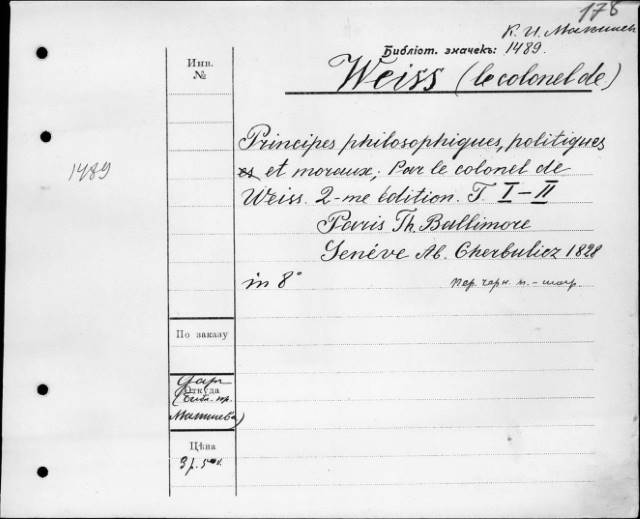 178
К. И. Матисен
Библіот. значекъ: 1489.
Weiss (le colonel de)
Инв.
№
1489
Principes philosophiques, politiques
et moraux; Par le colonel de
Weiss. 2-me édition. T. I–II
Paris Th. Ballimore
Genéve Ab. Cherbuliez 1828
in 8°
пер. черн. к.-шагр.
По заказу
Откуда
Цѣна
3 р.